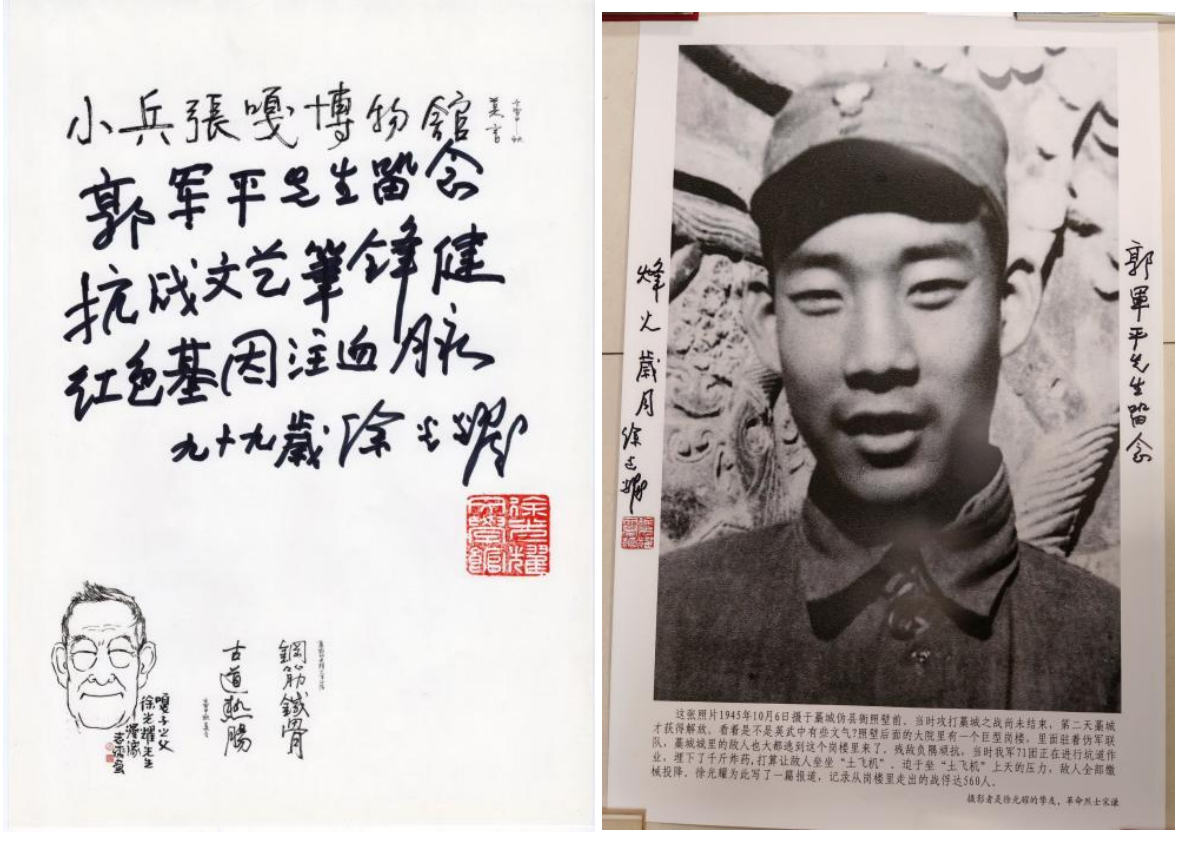 小兵張嘎博物館
莫言
郭军平先生留念
抗战文艺筆鋒健
红色基因注血脉
九十九歳徐光耀
徐光耀
文學館
鋼筋鐵骨
古道熱腸
嘎子之父
徐光耀先生
郭軍平先生留念
烽火歲月
徐光耀
这张照片1945年10月6日摄于藁城伪县衙照壁前。当时攻打藁城之战尚未结束，第二天藁城
才获得解放。看看是不是英武中有些文气？照壁后面的大院里有一个巨型岗楼，里面驻着伪军联
队，藁城城里的敌人也大都逃到这个岗楼里来了。残敌负隅顽抗，当时我军71团正在进行坑道作
业，埋下了千斤炸药，打算让敌人坐坐“土飞机”。迫于坐“土飞机”上天的压力，敌人全部缴
械投降。徐光耀为此写了一篇报道，记录从岗楼里走出的战俘达560人。
摄影者是徐光耀的挚友，革命烈士宋谦